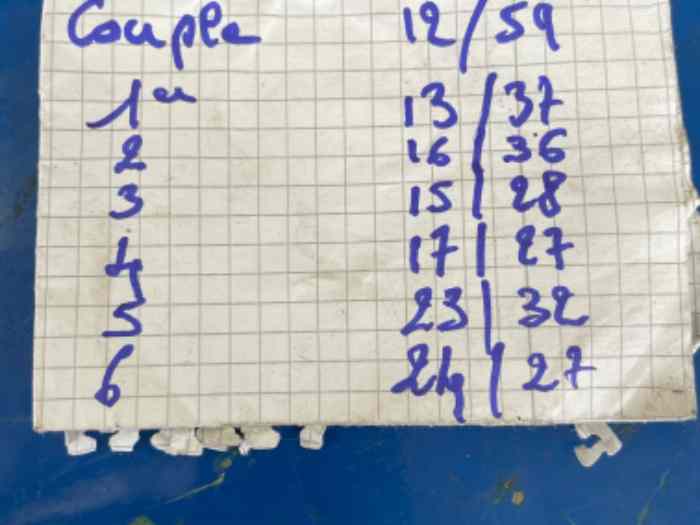 Couple 12/59
1er 13/37
2 16/36
3 15/28
4 17/27
5 23/32
6 24/27